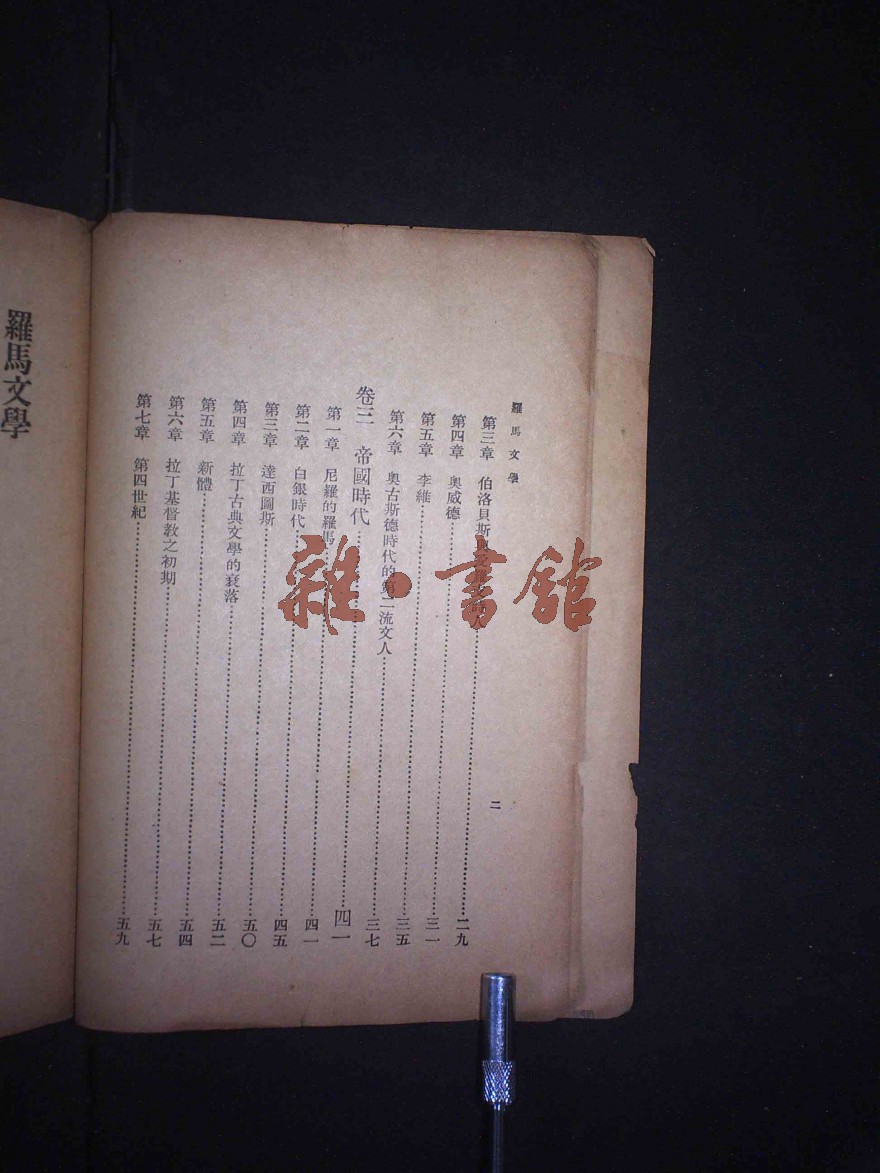 羅馬文學
二
第三章 伯洛貝斯 人……二九
第四章 奧威德……三一
第五章 李維……三五
第六章 奧古斯德時代的第二流文人……三七
卷三 帝國時代……四一
第一章 尼羅的羅馬……四一
第二章 白銀時代……四五
第三章 達西圖斯……五〇
第四章 拉丁古典文學的衰落……五二
第五章 新體……五四
第六章 拉丁基督教之初期……五七
第七章 第四世紀……五九
羅馬文學
雜·書館